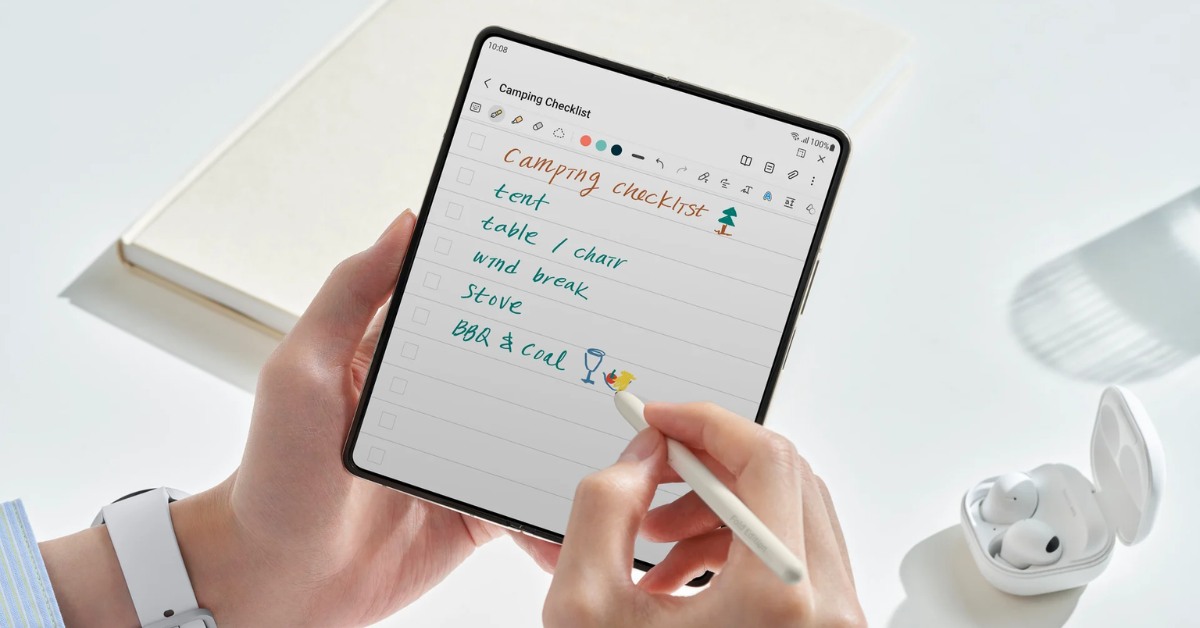 10:08
100%
Camping Checklist
Camping checklist
tent
table / chair
wind break
Stove
BBQ & coal